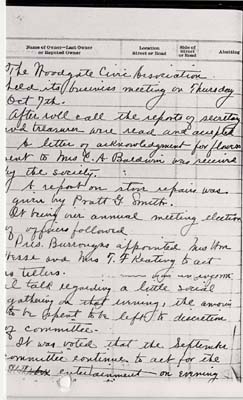 Name of Owner—Last Owner
or Reputed Owner
Location
Street or Road
Side of
Street
or Road
Abutting
The Woodgate Civic Association
held its business meeting on Thursday
Oct 7th.
After roll call the reports of secretary
and treasurer were read and accepted
A letter of acknowledgment for flowers
sent to Mrs C. A Baldwin was received
by the Society.
A report on stone repairs was
given by Pratt G. Smith.
It being our annual meeting election
of officers followed
Pres. Burroughs appointed Mrs Wm
and Mrs T. F Keating to act
as tellers. an informal
talk regarding a little social
gathering on that evening, the amount
to be spent to be left to discretion
of committee.
It was voted that the September
committee continue to act for the
entertainment on evening